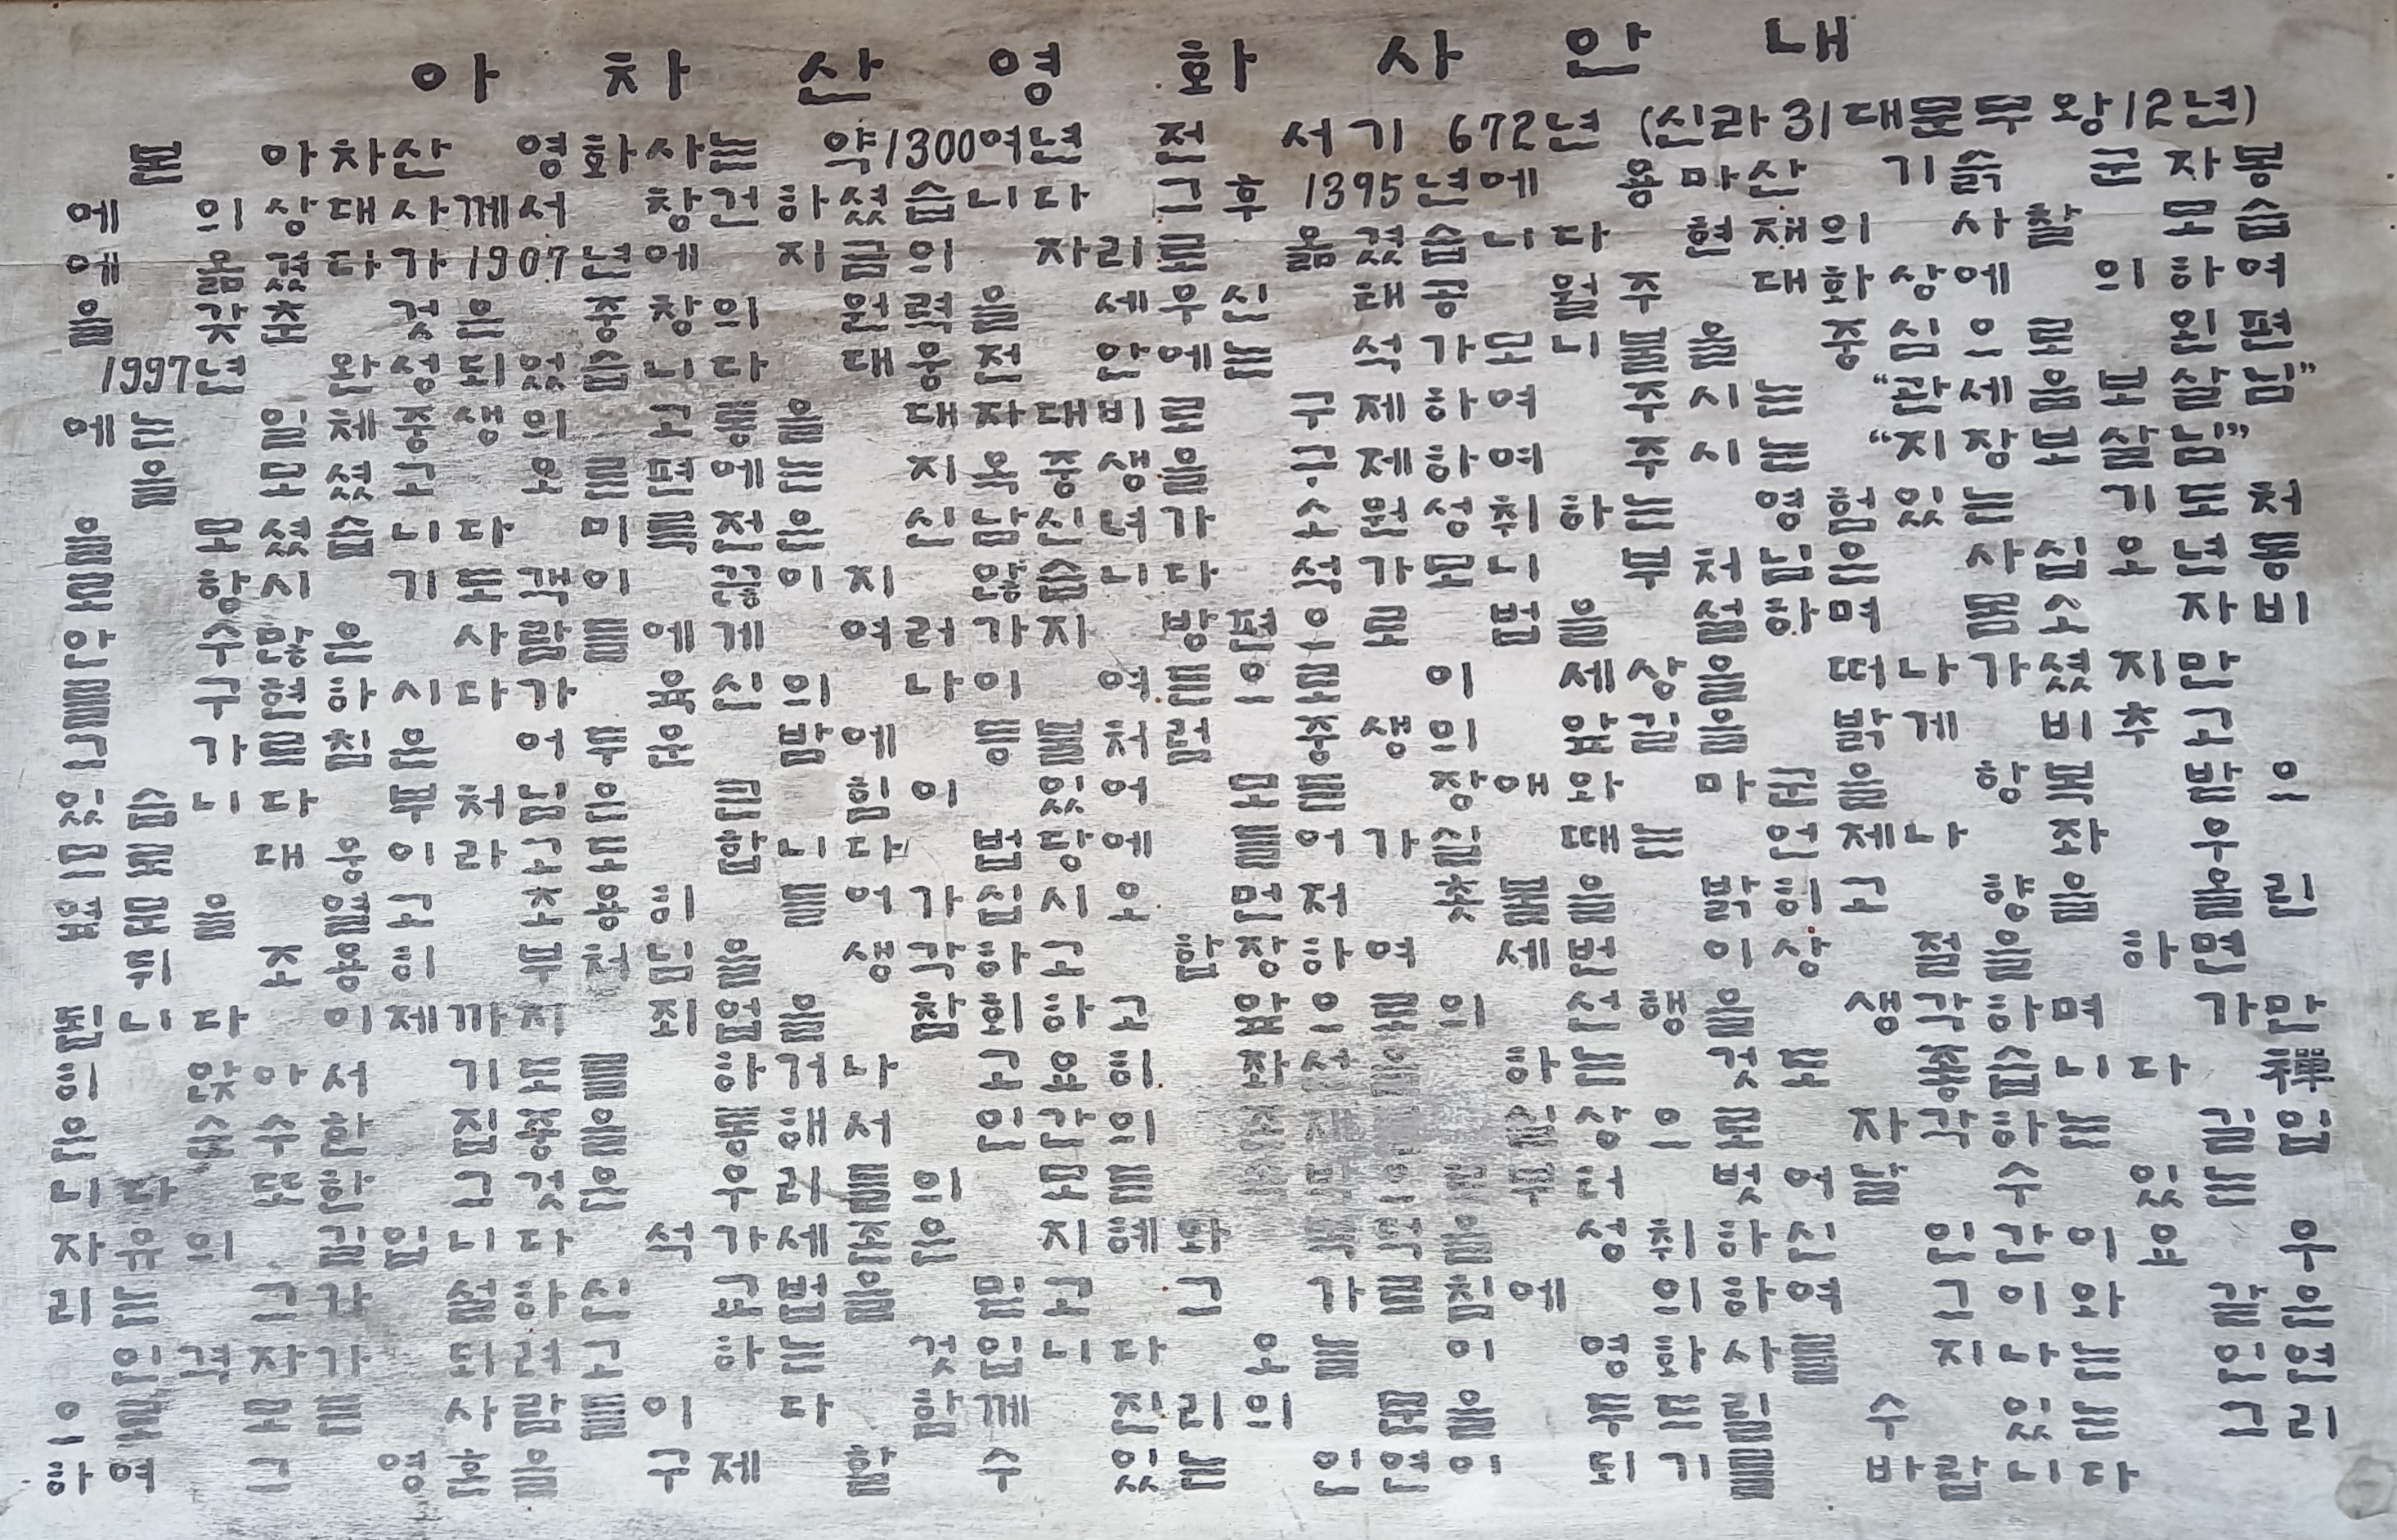 아차산영화사안내
본 아차산 영화사는 약1300여년 전 서기 672년 (신라31대문무왕12년)
에 의상대사께서 창건하셨습니다 그후 1395년에 용마산 기슭 군자동
에 옮겼다가1907년에 지금의 자리로 옮겼습니다 현재의 사찰 모습
을 갖춘 것은 중창의 원력을 세우신 태공 월주 대화상에 의하여
1997년 완성되었습니다 대웅전 안에는 석가모니불을 중심으로 왼편
에는 일체중생의 고통을 대자대비로 구제하여 주시는 "관세음보살님"
을 모셨고 오른편에는 지옥중생을 구제하여 주시는 "지장보살님"
을 모셨습니다 미륵전은 신남신녀가 소원성취하는 영험있는 기도처
로 항시 기도객이 끊이지 않습니다 석가모니 부처님은 사십오년동
안 수많은 사람들에게 여러가지 방편으로 법을 설하며 몸소 자비
를 구현하시다가 육신의 나이 여든으로 이 세상을 떠나가셨지만
그 가르침은 어두운 밤에 등불처럼 중생의 앞길을 밝게 비추고
있습니다 부처님은 큰 힘이 있어 모든 장애와 마군을 항복 받으
므로 대웅이라고도 합니다 법당에 들어가실 때는 언제나 좌 우
옆문을 열고 조용히 들어가십시오 먼저 촛불을 밝히고 향을 올린
뒤 조용히 부처님을 생각하고 합장하여 세번 이상 절을 하면
됩니다 이제까지 죄업을 참회하고 앞으로의 선행을 생각하며 가만
히 앉아서 기도를 하거나 고요히 좌선을 하는 것도 좋습니다 禪
은 순수한 집중을 통해서 인간의 실상으로 자각하는 길입
니다 또한 그것은 우리들의 모든 부터 벗어날 수 있는
자유의 길입니다 석가세존은 지혜와 복덕을 성취하신 인간이요 우
리는 그가 설하신 교법을 믿고 그 가르침에 의하여 그이와 같은
인격자가 되려고 하는 것입니다 오늘 이 영화사를 지나는 인연
으로 모든 사람들이 다 함께 진리의 문을 두드릴 수 있는 그리
하여 그 영혼을 구제 할 수 있는 인연이 되기를 바랍니다